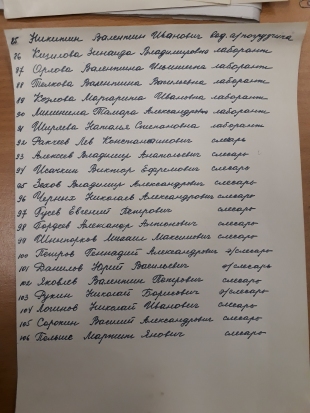 85 Никитин Валентин Иванович вед.
86 Владимировна лаборант
87 Орлова Валентина Ильинична лаборант
88 Валентина Васильевна лаборант
89 Маргарита Ивановна лаборант
90 Тамара Александровна лаборант
91 Наталья Степановна лаборант
92 Лев Константинович слесарь
93 Алексеев Владимир Анатольевич слесарь
94 Исачкин Виктор Ефремович слесарь
95 Зотов Владимир Александрович слесарь
96 Черных Николаев Александрович слесарь
97 Гусев Евгений Петрович слесарь
98 Гордеев Александр Антонович слесарь
99 Михаил Максимович слесарь
100 Петров Геннадий Александрович э/слесарь
101 Данилов Юрий Васильевич э/слесарь
102 Яковлев Валентин Петрович слесарь
103 Николай Борисович э/слесарь
104 Логинов Николай Иванович слесарь
105 Сорокин Василий Александрович слесарь
106 Мартин Янович слесарь